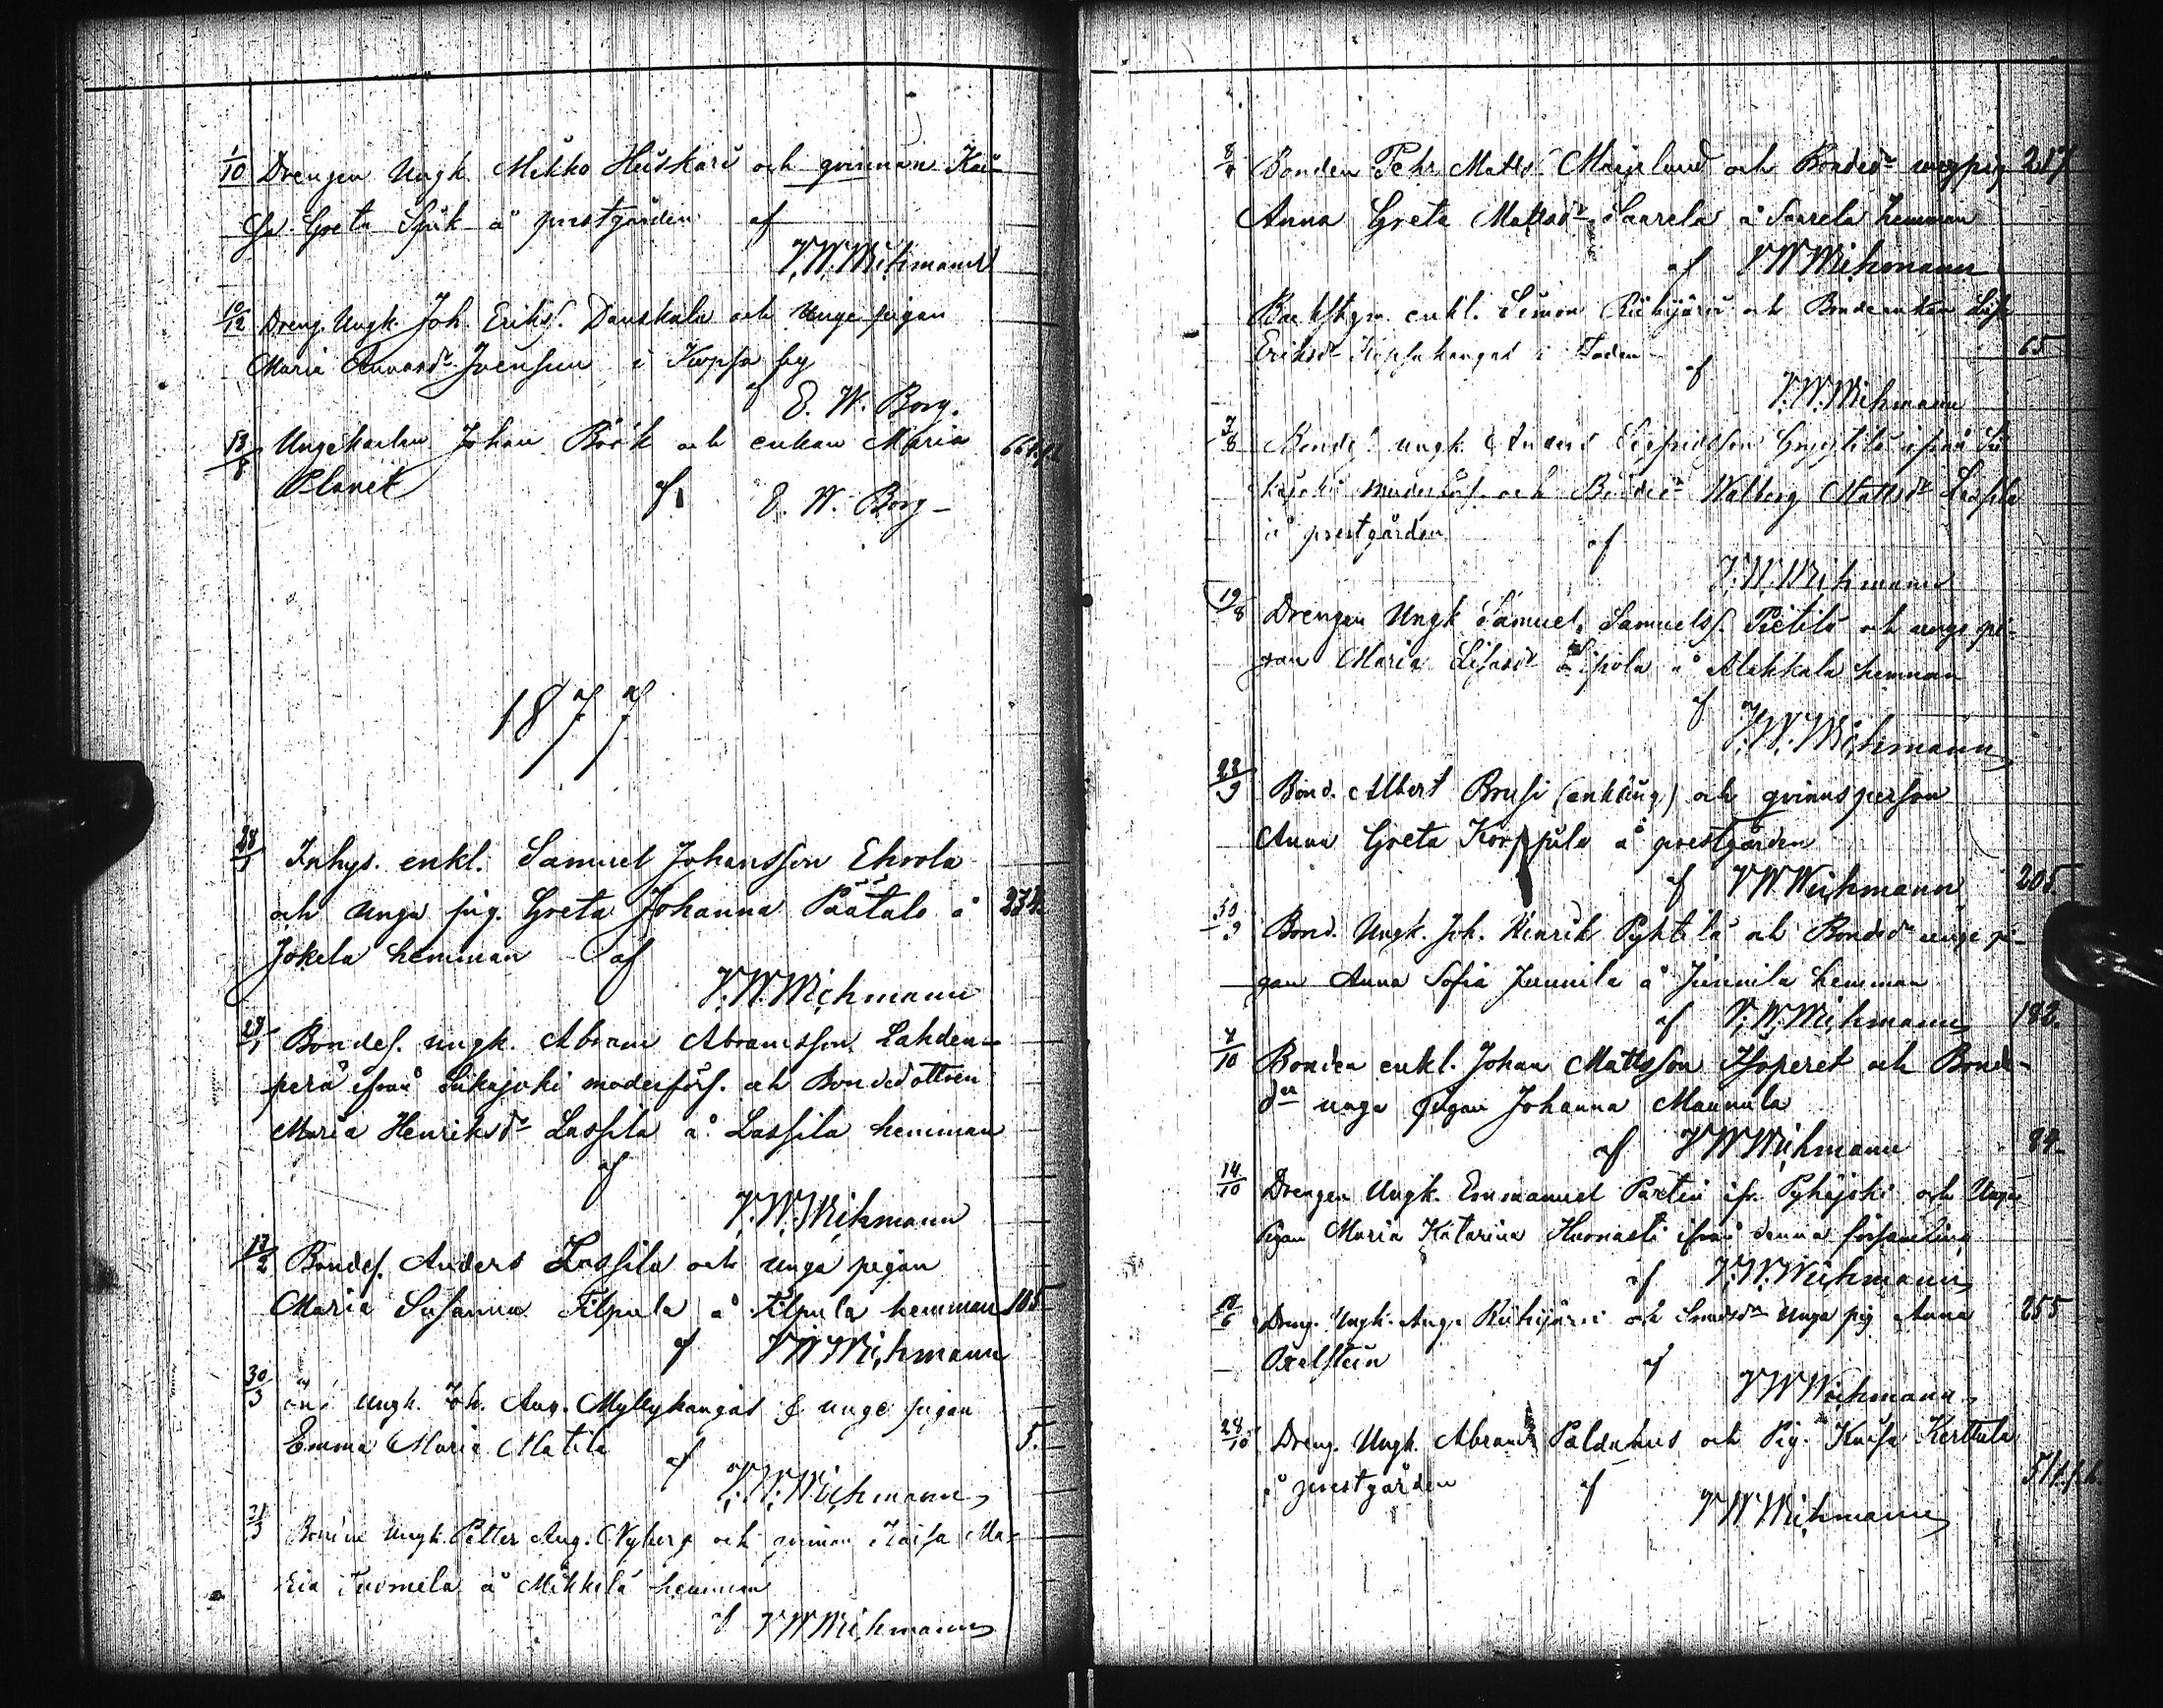 1/10 Drengen Ungk. Mikko Huiskari och qvinnan Kai-
sa Greta Spik å prestgården af
V. W. Wichmann
10/12 Dreng. Ungk. Joh. Eriks. Danskala och Unge pigan
Maria Annasdr i Kopsa by
af E. W. Borg.
13/8 Ungekarlen Johan Böök och enkan Maria
Planet af E. W. Borg
1877
28/1 Inhys. enkl. Samuel Johansson Ehrola
och Unga pig. Greta Johanna Päätalo å 234.
Jokela hemman af
V. W. Wichmann
28/1 Bondes. ungk. Abram Abramsson Lahden-
perä ifrån Siikajoki moderförs. och Bondedottren
Maria Henriksdr Lassila å Lassila hemman
af
V. W. Wichmann
17/2 Bondes. Anders Lassila och unga pigan
Maria Susanna Filpula å Filpula hemman 105
af V W Wichmann
30/3 Ungk. Joh. Aug. Myllykangas & unge pigan
Emma Maria Matila 5.
af V. W. Wichmann
31/3 Ungk. Petter Aug. Nyberg och qvinnan Kaisa Ma-
ria Tuomela å Mikkilä hemman
af V W Wichmann
Bonden Pehr Matts. och Bondedr ungpig 217
Anna Greta Mattsdr Saarela å Saarela hemman
af V W Wichmann
enkl. Simon Riihijärvi och Bondeenkan Lisa
Eriksdr Kopsakangas i Staden 65
af
V. W. Wichmann
7/8 Bondes. ungk. Anders Sigfridsson ifrån Si-
kajoki moderförs. och Bondedr Walborg Mattsdr Lassila
i prestgården af
V. W. Wichmann
19/8 Drengen Ungk Samuel Samuelss. Pietilä och unge pi-
gan Maria Lisasdr å Alakkala hemman
af
V. W. Wichmann
23/9 Bond. Albert Brusi (enkling) och qvinnsperson
Anna Greta Korppila å prestgården
af V W Wichmann 205
30/9 Bond. Ungk. Joh. Henrik Pyhtilä och Bondedr unge pi-
gan Anna Sofia Junnila å Junnila hemman
af V. W. Wichmann 182.
7/10 Bonden enkl. Johan Mattsson Isoperet och Bonde-
dr unga pigan Johanna Maunula
af V W Wichmann 84
14/10 Drengen Ungk. Emmanuel Partin ifr. Pyhäjoki och Unga
Pigan Maria Katarina Huonasti ifrån denna församling
af V. W. Wichmann
Dreng. Ungk. Aug. Riihijärvi och unga pig Anna 255
Oxelstein af
V W Wichmann
28/10 Dreng. Ungk. Abram Paldanius och Pig. Kaisa Kerttula
i prestgården af
V W Wichmann